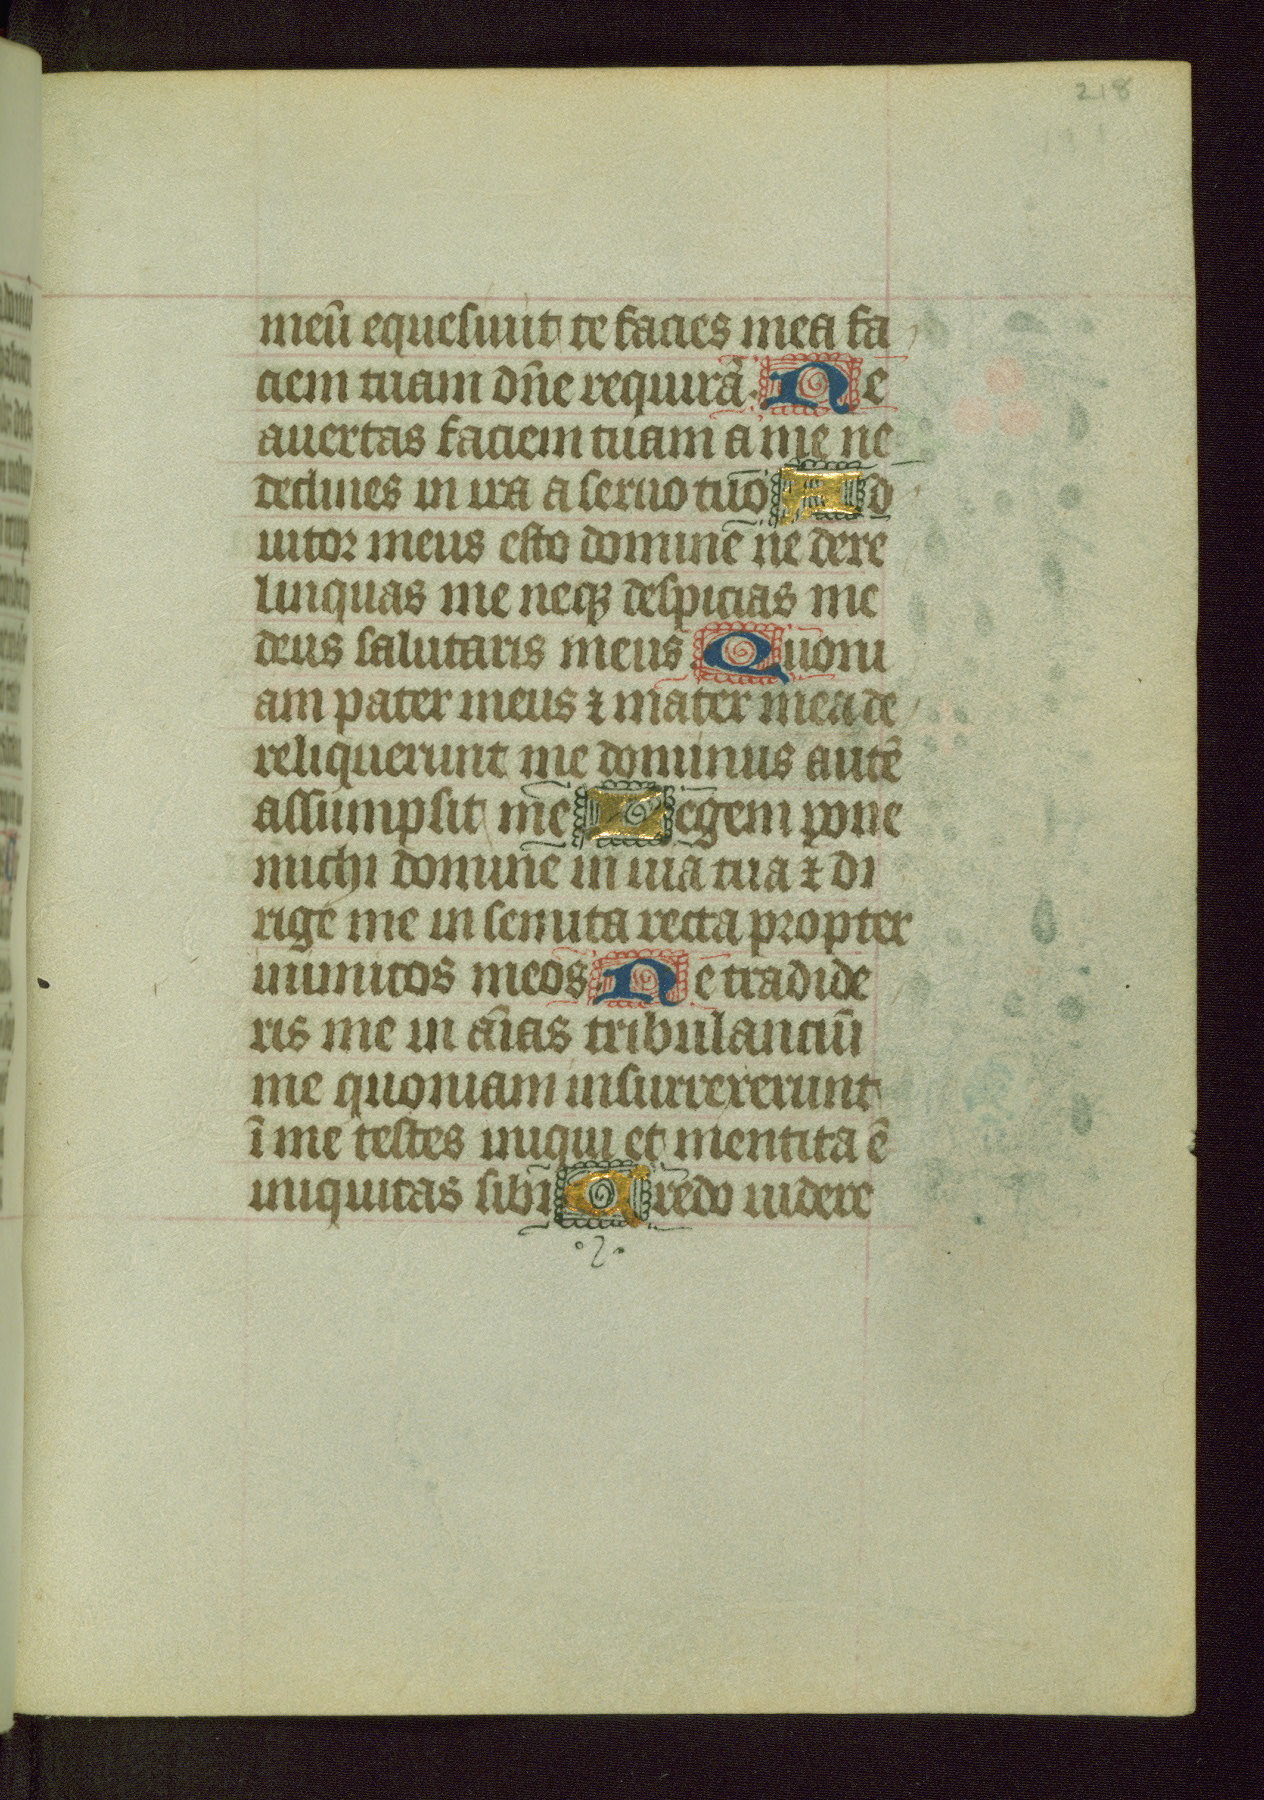 218
meū equesiuit te facies mea fa
ciem tuam dn̄e requirā. Ne
auertas faciem tuam a me ne
declines in ira a seruo tuo Ad
iutor meus esto domine ne dere
linquas me neqꝫ despicias me
deus salutaris meus Quoni
am pater meus ⁊ mater mea de
reliquerunt me dominus autē
assumpsit me Legem pone
michi domine in uia tua ⁊ di
rige me in semita recta propter
inimicos meos Ne tradide
ris me in āīas tribulanciū
me quoniam insurrexerunt
ī me testes iniqui et mentita ē
iniquitas sibi Credo uidere